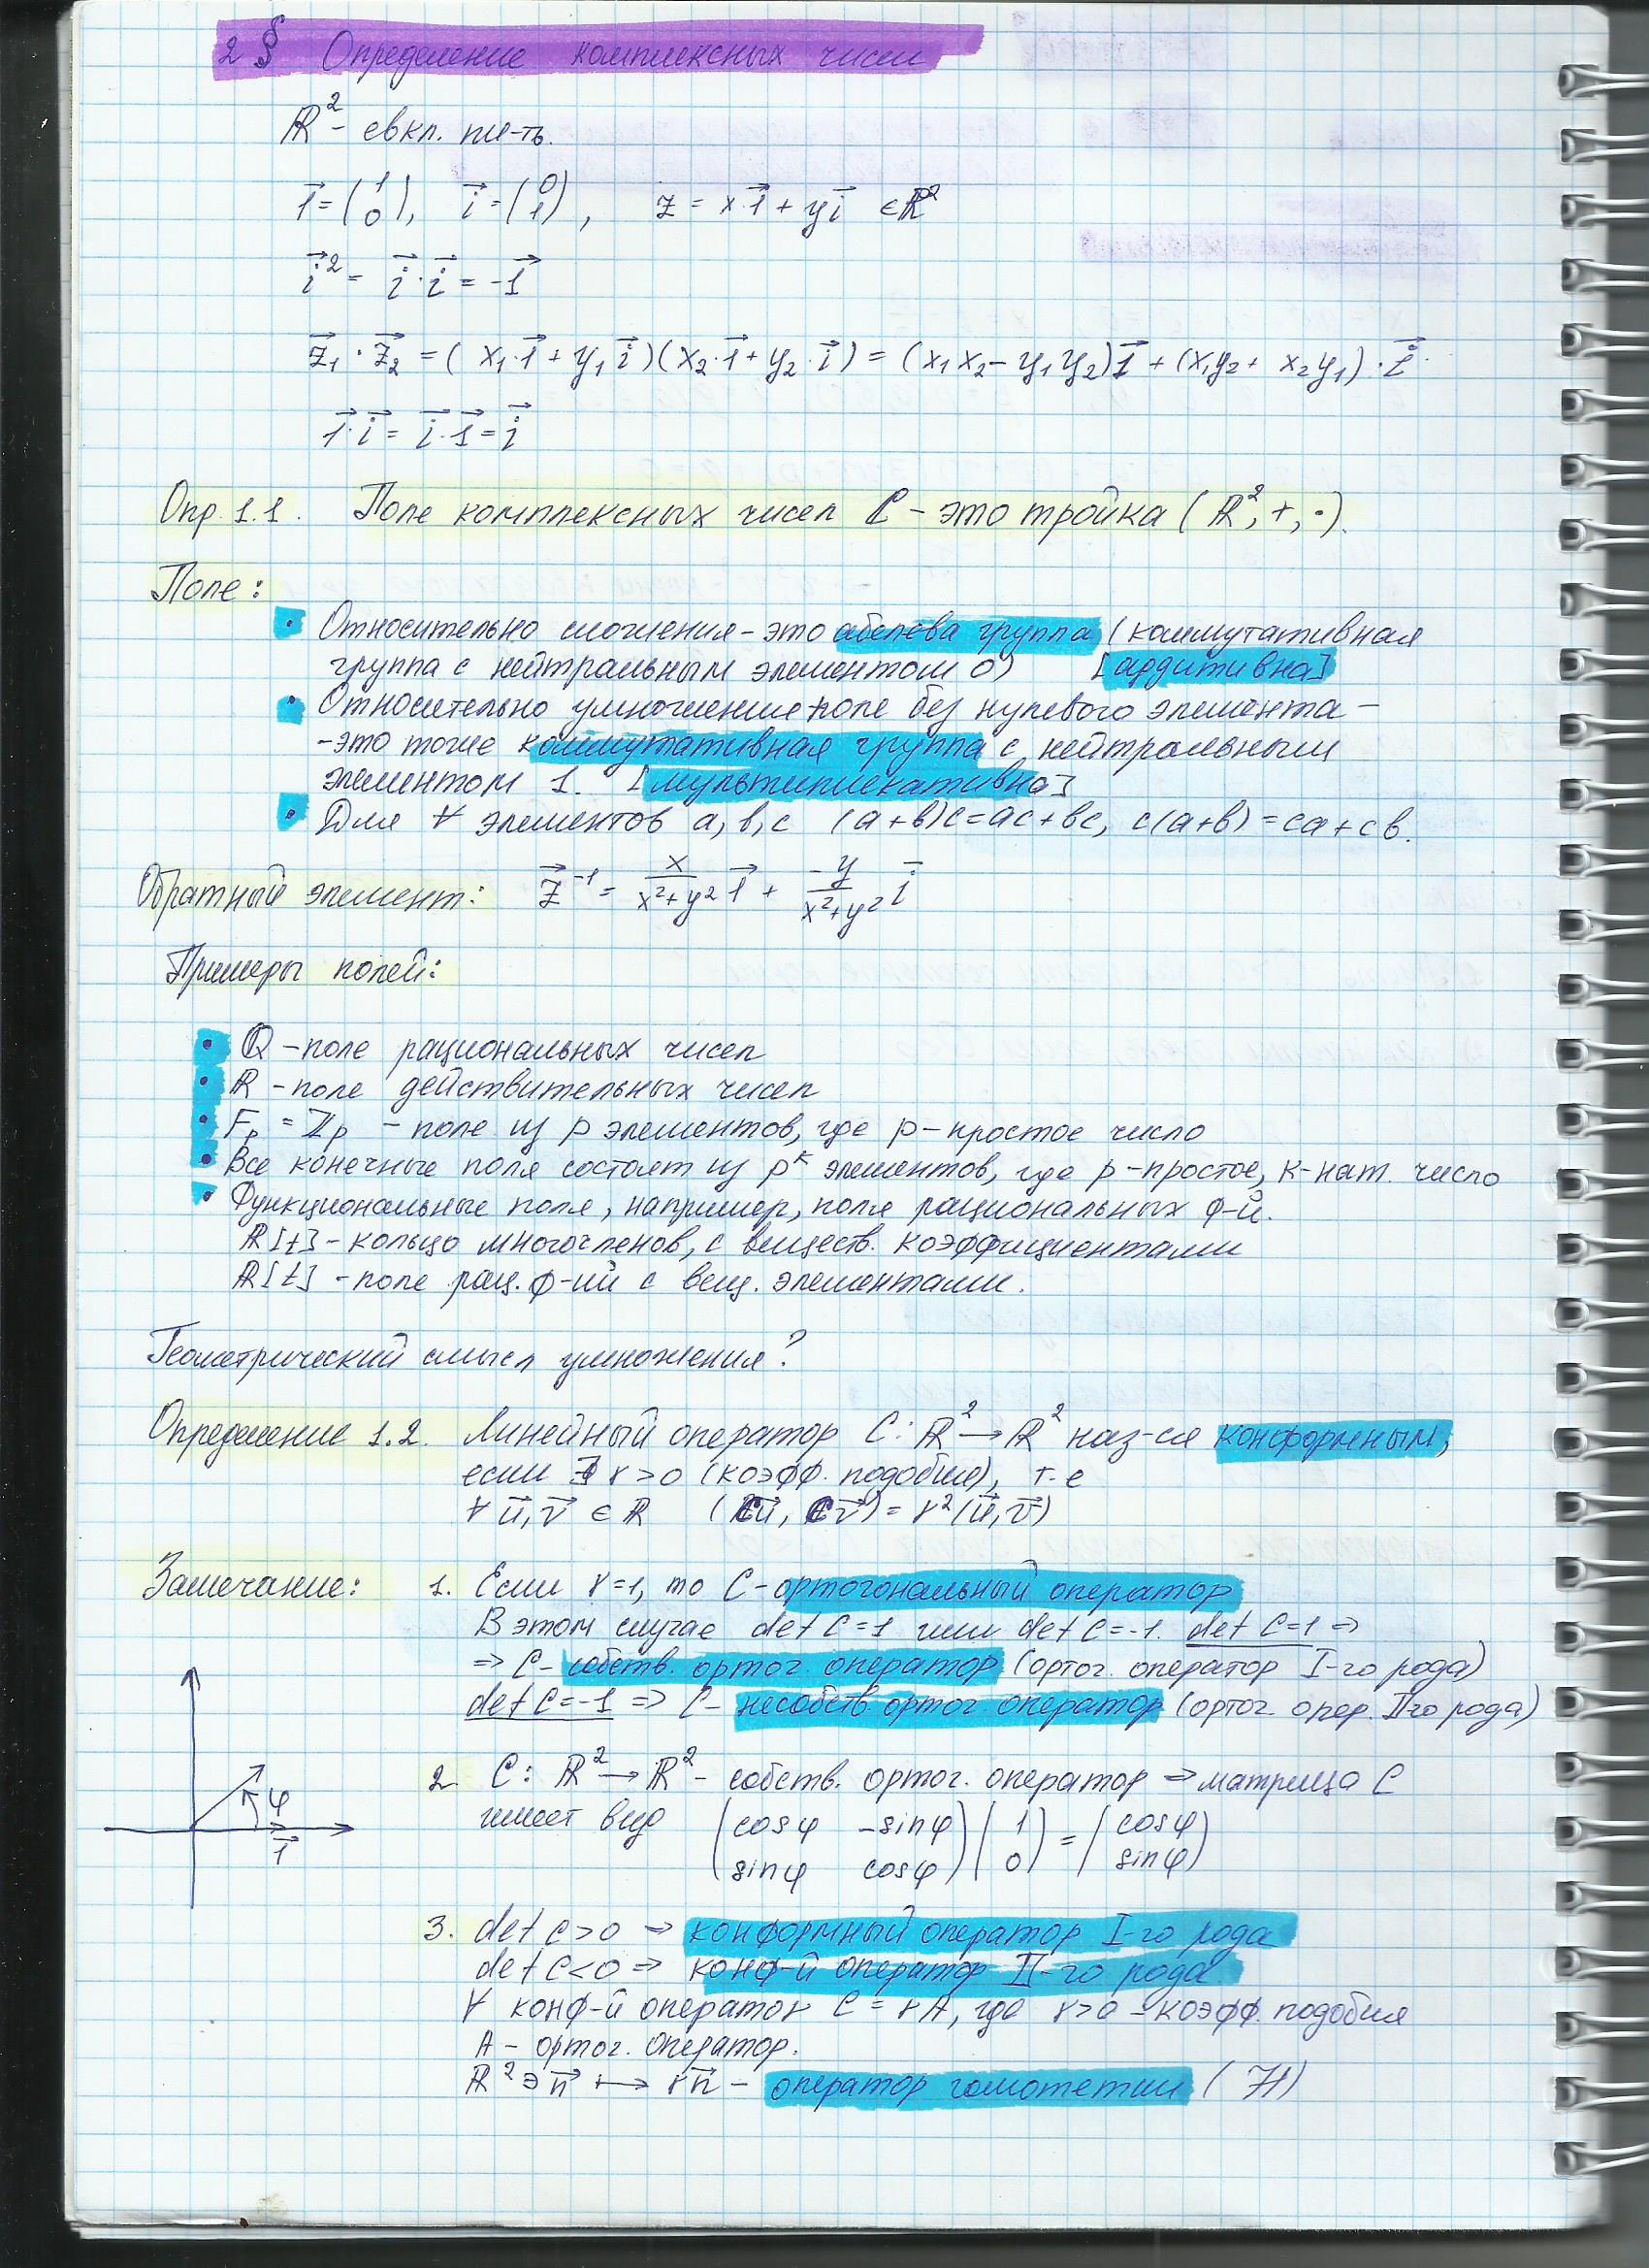 2 § Определение комплексных чисел
ℝ² - евкл. пр-ть.
1⃗ = (1 0), i⃗ = (0 1), z = x·1⃗ + yi⃗ ∈ ℝ²
i⃗² = i⃗·i⃗ = -1⃗
z⃗₁ · z⃗₂ = (x₁·1⃗ + y₁i⃗)(x₂·1⃗ + y₂·i⃗) = (x₁x₂ - y₁y₂)1⃗ + (x₁y₂ + x₂y₁)·i⃗
1⃗·i⃗ = i⃗·1⃗ = i⃗
Опр. 1.1. Поле комплексных чисел ℂ - это тройка (ℝ², +, ·).
Поле:
• Относительно сложения - это абелева группа (коммутативная
группа с нейтральным элементом 0) [аддитивна]
• Относительно умножение поле без нулевого элемента -
- это тоже коммутативная группа с нейтральным
элементом 1. [мультипликативна]
• Для ∀ элементов a, b, c (a+b)c = ac+bc, c(a+b) = ca+cb.
Обратный элемент: z⃗⁻¹ = x/(x²+y²) 1⃗ + -y/(x²+y²) i⃗
Примеры полей:
• ℚ - поле рациональных чисел
• ℝ - поле действительных чисел
• Fₚ = ℤₚ - поле из p элементов, где p - простое число
• Все конечные поля состоят из pᵏ элементов, где p - простое, k - нат. число
• Функциональные поля, например, поля рациональных ф-й.
ℝ[t] - кольцо многочленов, с веществ. коэффициентами
ℝ[t] - поле рац. ф-ий с вещ. элементами.
Геометрический смысл умножения?
Определение 1.2. Линейный оператор C: ℝ² → ℝ² наз-ся конформным,
если ∃ r > 0 (коэфф. подобия), т.е
∀ u⃗, v⃗ ∈ ℝ (Cu⃗, Cv⃗) = r²(u⃗, v⃗)
Замечание: 1. Если r = 1, то C - ортогональный оператор
В этом случае det C = 1 или det C = -1. det C = 1 ⇒
⇒ C - собств. ортог. оператор (ортог. оператор I-го рода)
det C = -1 ⇒ C - несобств. ортог. оператор (ортог. опер. II-го рода)
φ
1⃗
2. C: ℝ² → ℝ² - собств. ортог. оператор ⇒ матрица C
имеет вид (cosφ -sinφ) (1) = (cosφ)
(sinφ cosφ) (0) (sinφ)
3. det C > 0 ⇒ конформный оператор I-го рода
det C < 0 ⇒ конф-й оператор II-го рода
∀ конф-й оператор C = rA, где r > 0 - коэфф. подобия
A - ортог. оператор.
ℝ² ∋ n⃗ ↦ rn⃗ - оператор гомотетии (H)